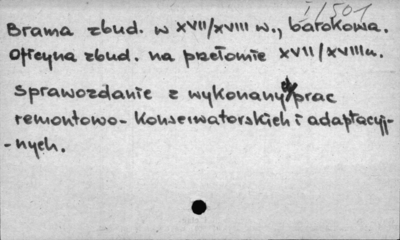 I/501
Brama zbud. w XVII/XVIII w., barokowa.
Oficyna zbud. na przełomie XVII/XVIIIw.
Sprawozdanie z wykonanych prac
remontowo-konserwatorskich i adaptacyj-
-nych.